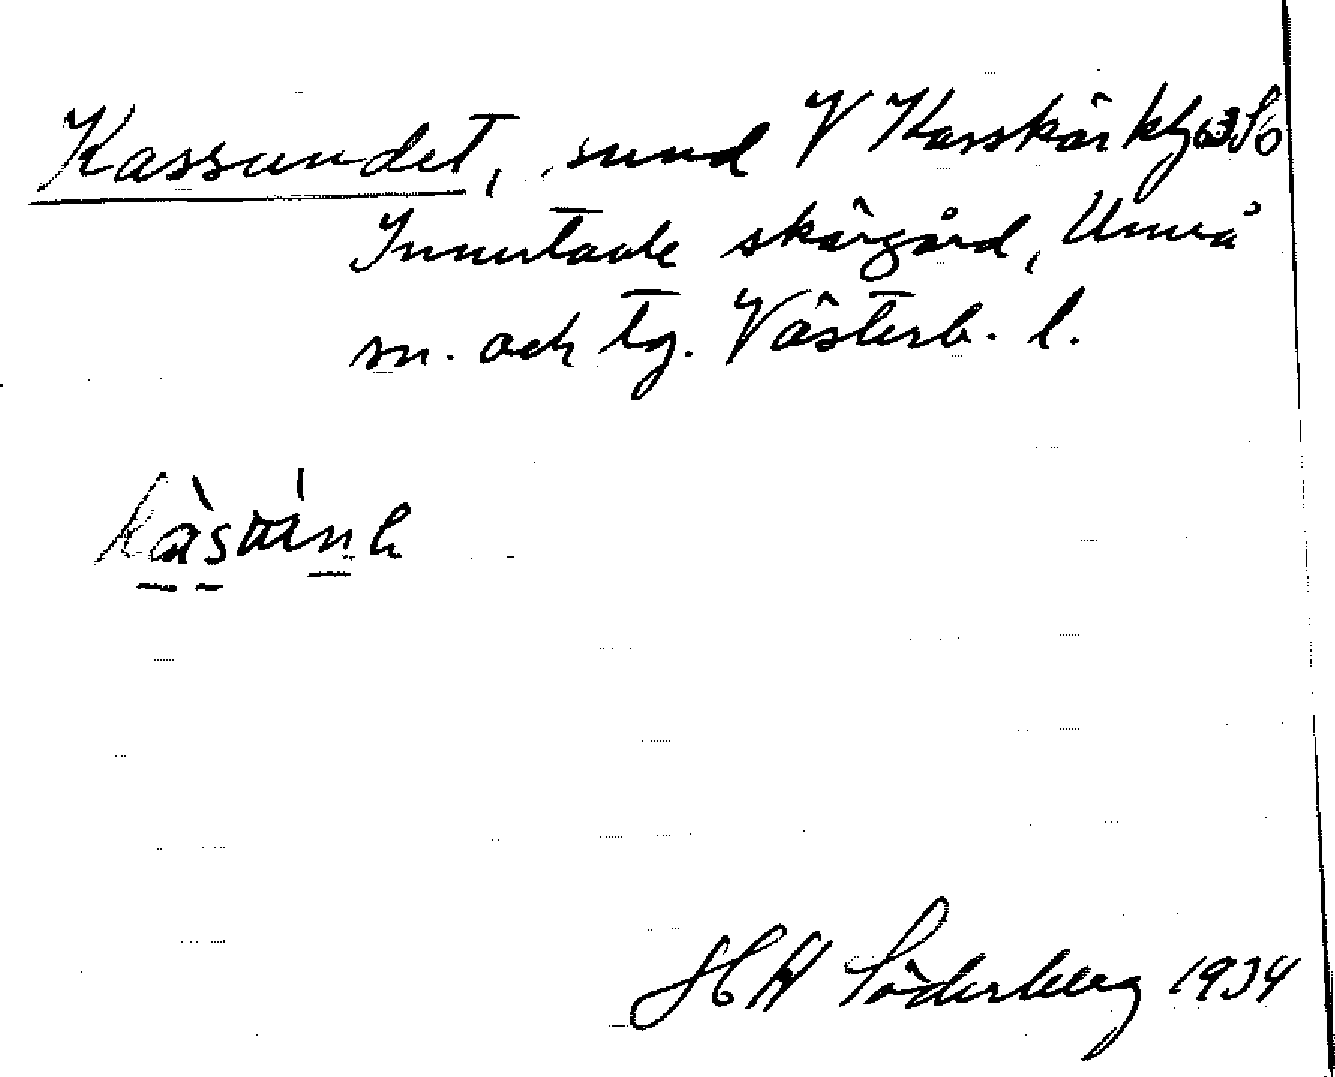 Kassundet, sund V Kasskär kbl 63 So
Innertavle skärgård, Umeå
sn. och tg. Västerb. l.
H Söderberg 1934